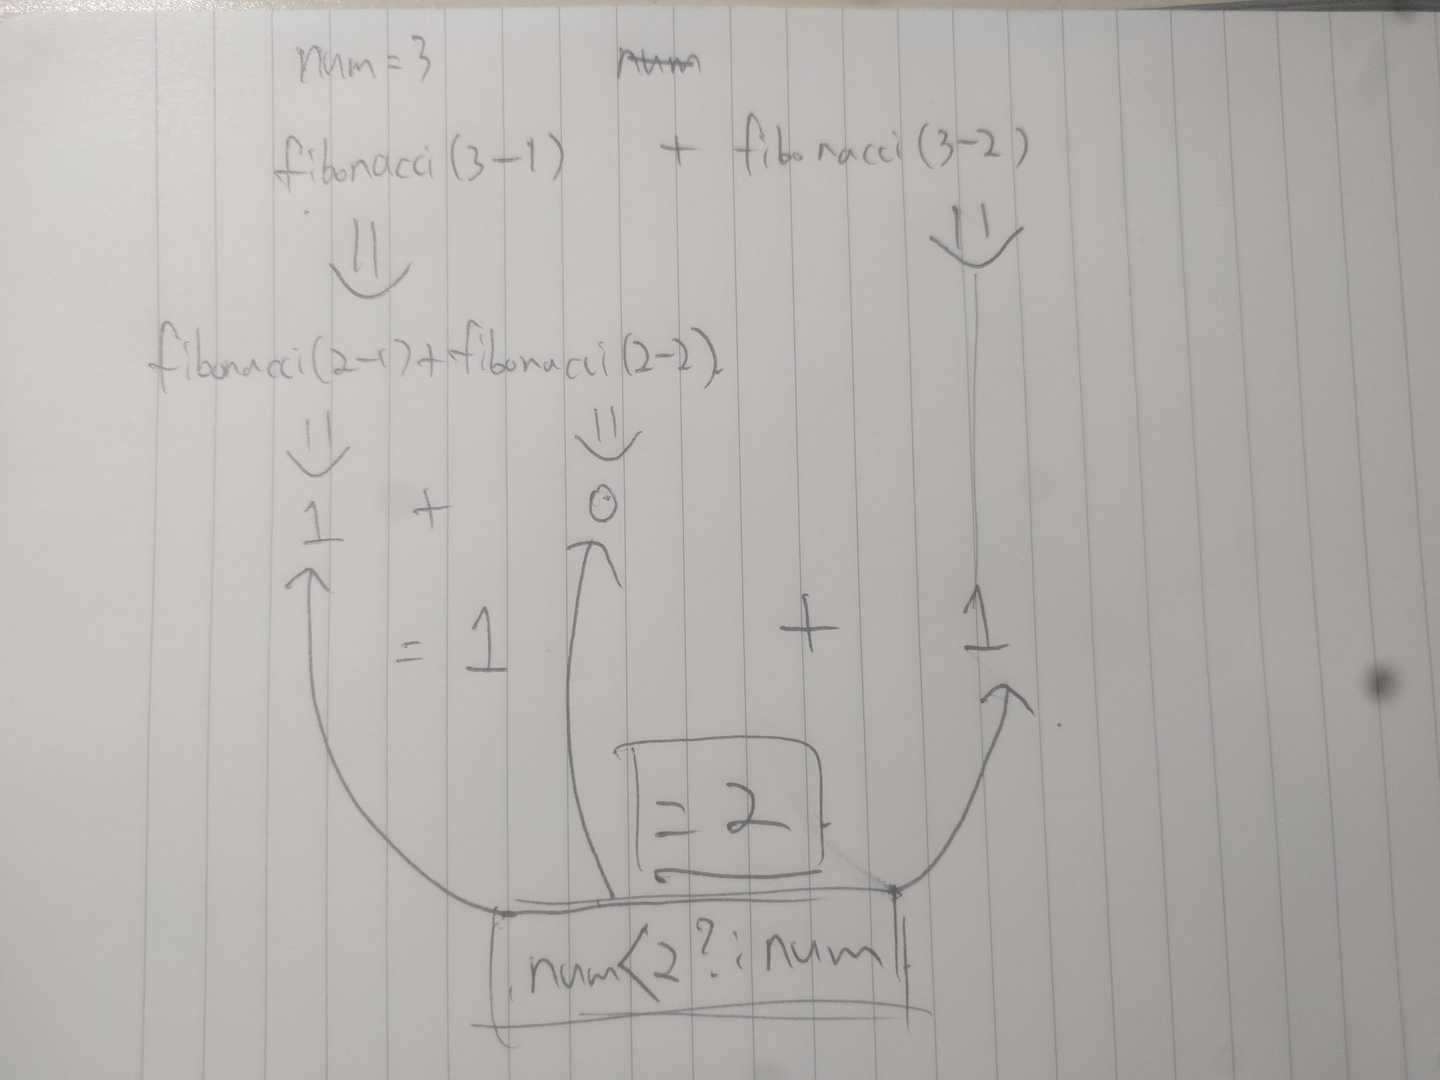 num = 3 num
fibonacci (3-1) + fibonacci (3-2)
fibonacci (2-1) + fibonacci (2-2)
1 + 0
= 1 + 1
= 2
num < 2 ? : num